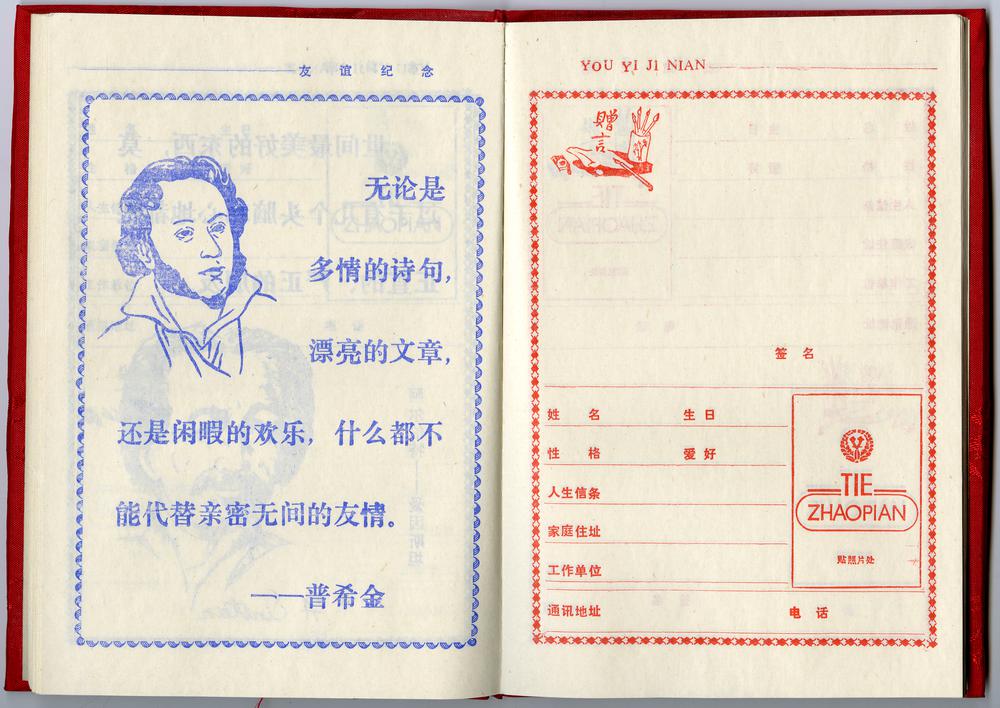 友谊纪念
无论是
多情的诗句,
漂亮的文章,
还是闲暇的欢乐,什么都不
能代替亲密无间的友情。
——普希金
YOU YI JI NIAN
赠言
签名
姓名 生日
性格 爱好
人生信条
家庭住址
工作单位
通讯地址 电话
TIE
ZHAOPIAN
贴照片处